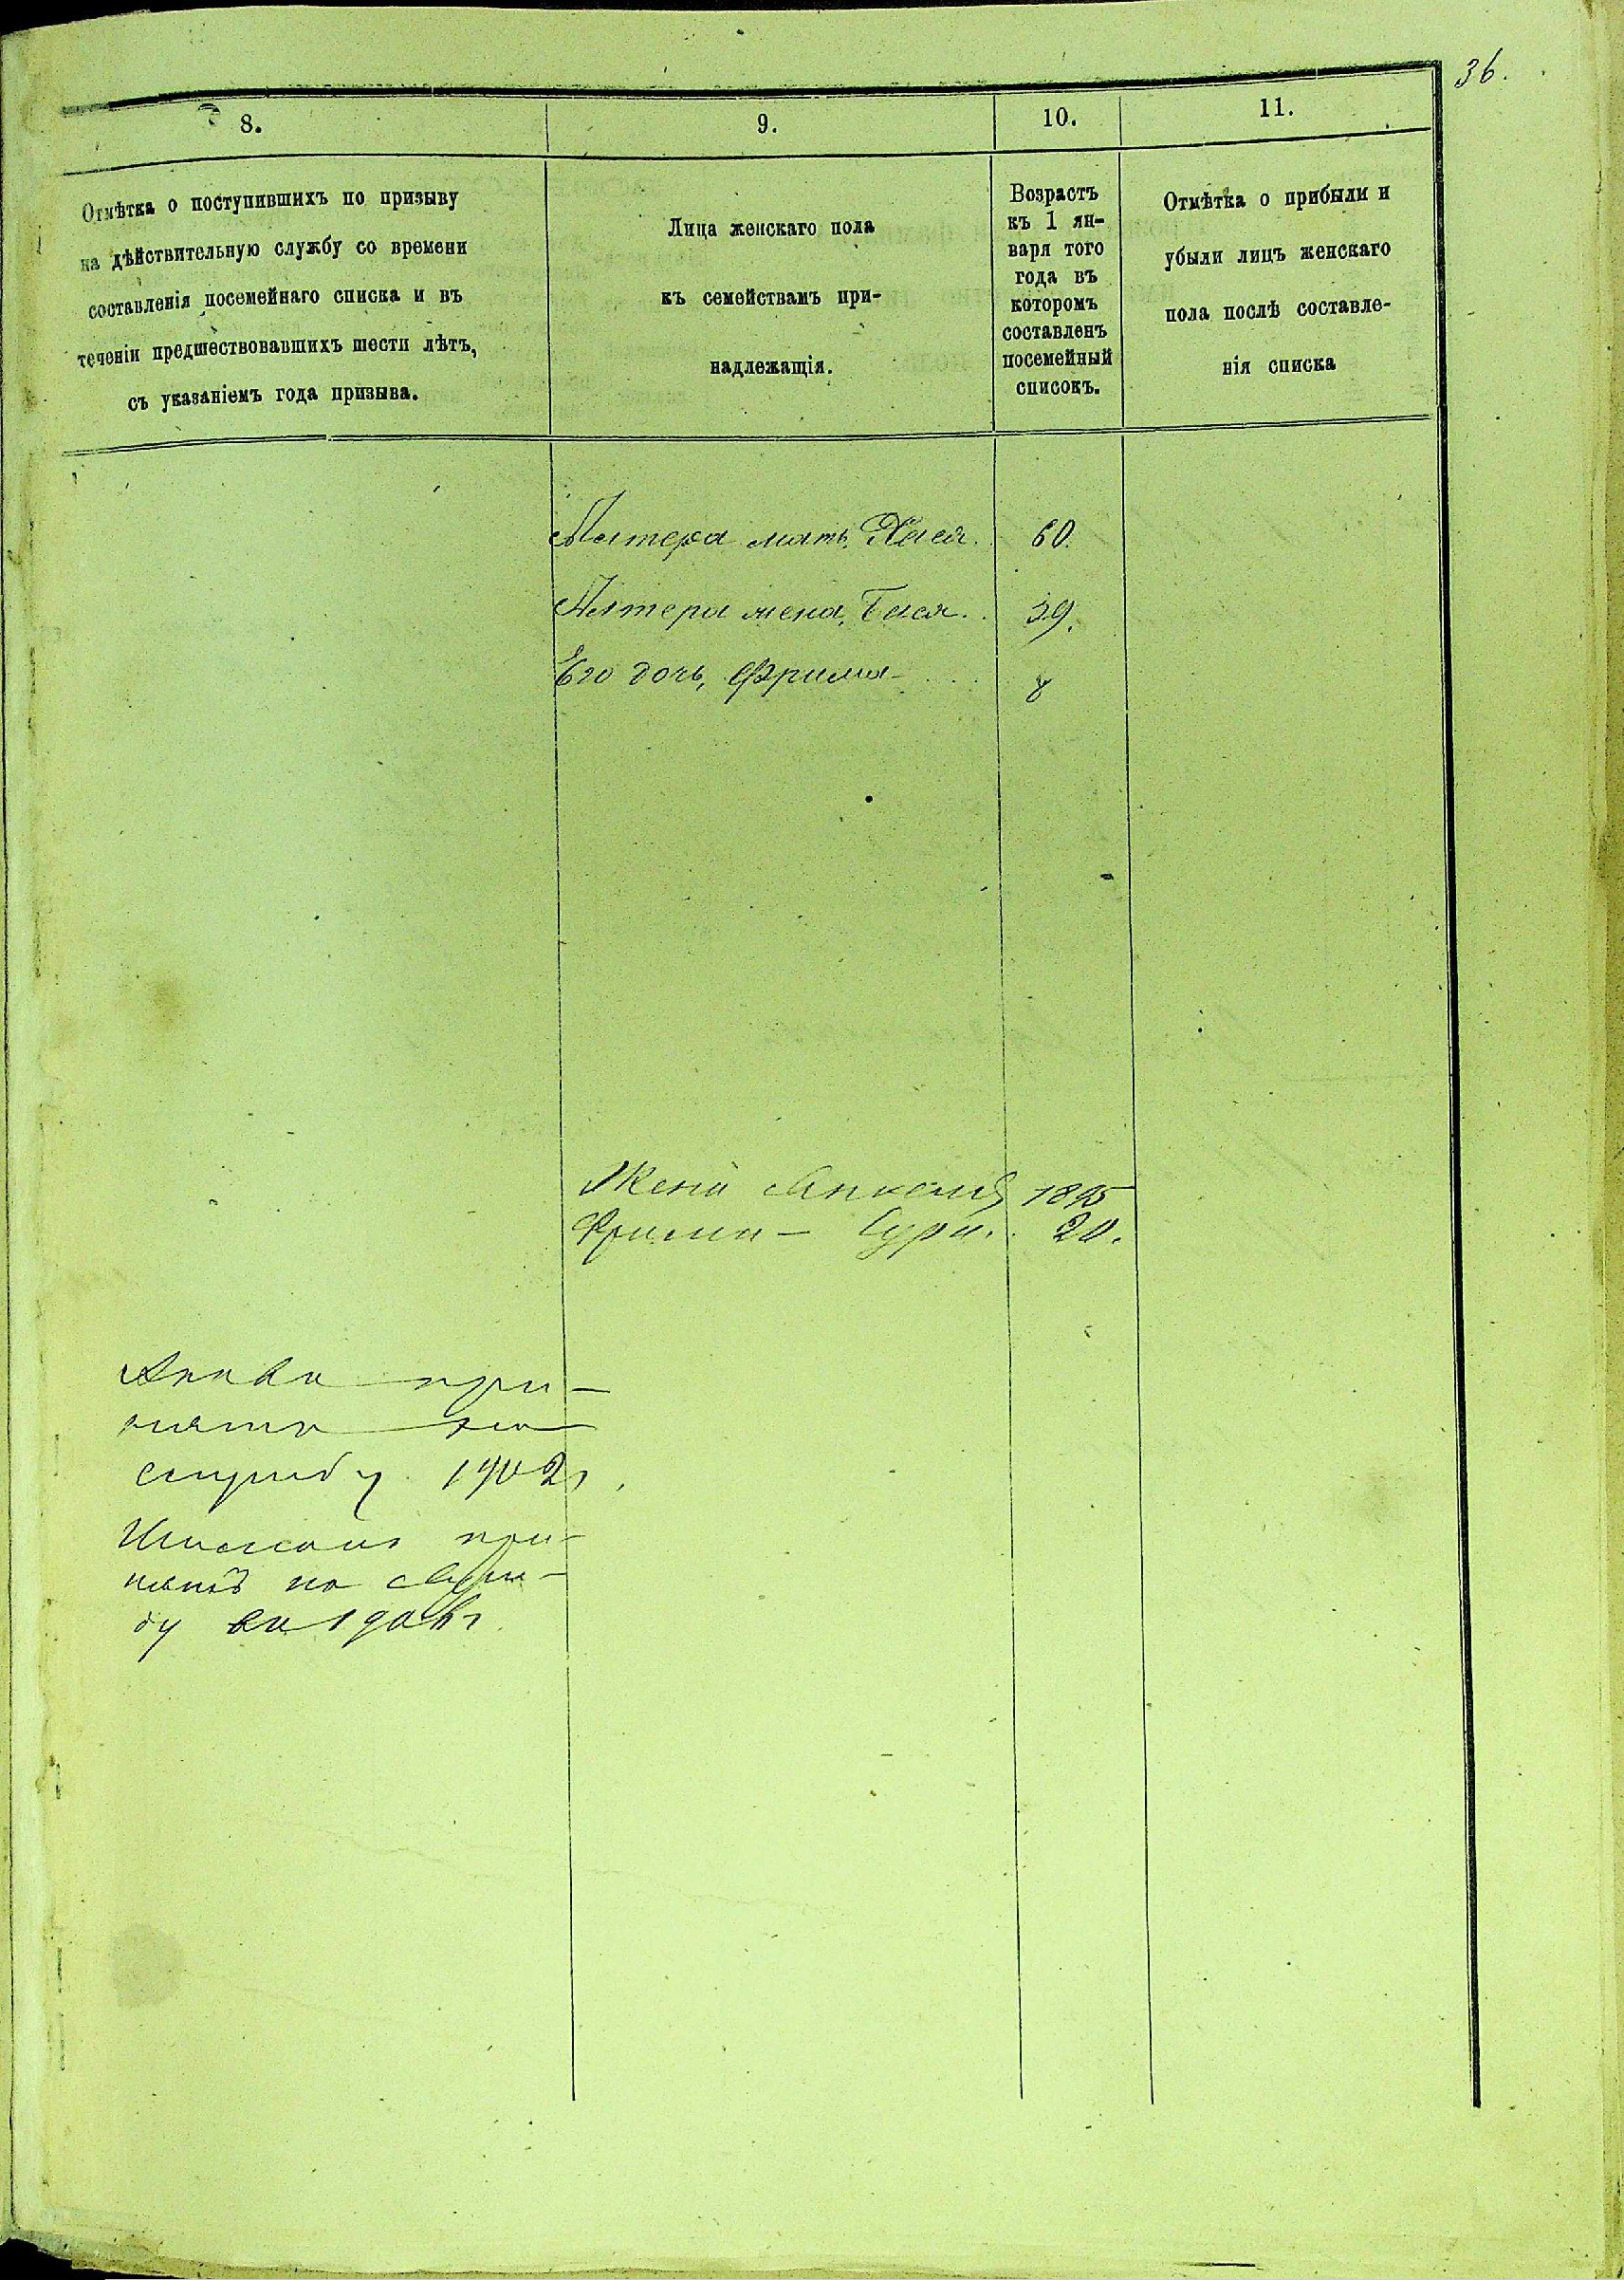 36.
8.
9.
10.
11.
Отмѣтка о поступившихъ по призыву
на дѣйствительную службу со времени
составленія посемейнаго списка и въ
теченіи предшествовавшихъ шести лѣтъ,
съ указаніемъ года призыва.
Лица женскаго пола
къ семействамъ при-
надлежащія.
Возрастъ
къ 1 ян-
варя того
года въ
которомъ
составленъ
посемейный
списокъ.
Отмѣтка о прибыли и
убыли лицъ женскаго
пола послѣ составле-
нія списка
мать, Хася. 60.
жена, Бася. 39.
Его дочь, Фрима 8
Жена 1895
Фрима - Сура. 20.
при-
нятъ на
службу 1902 г.
при-
нятъ на служ-
бу въ